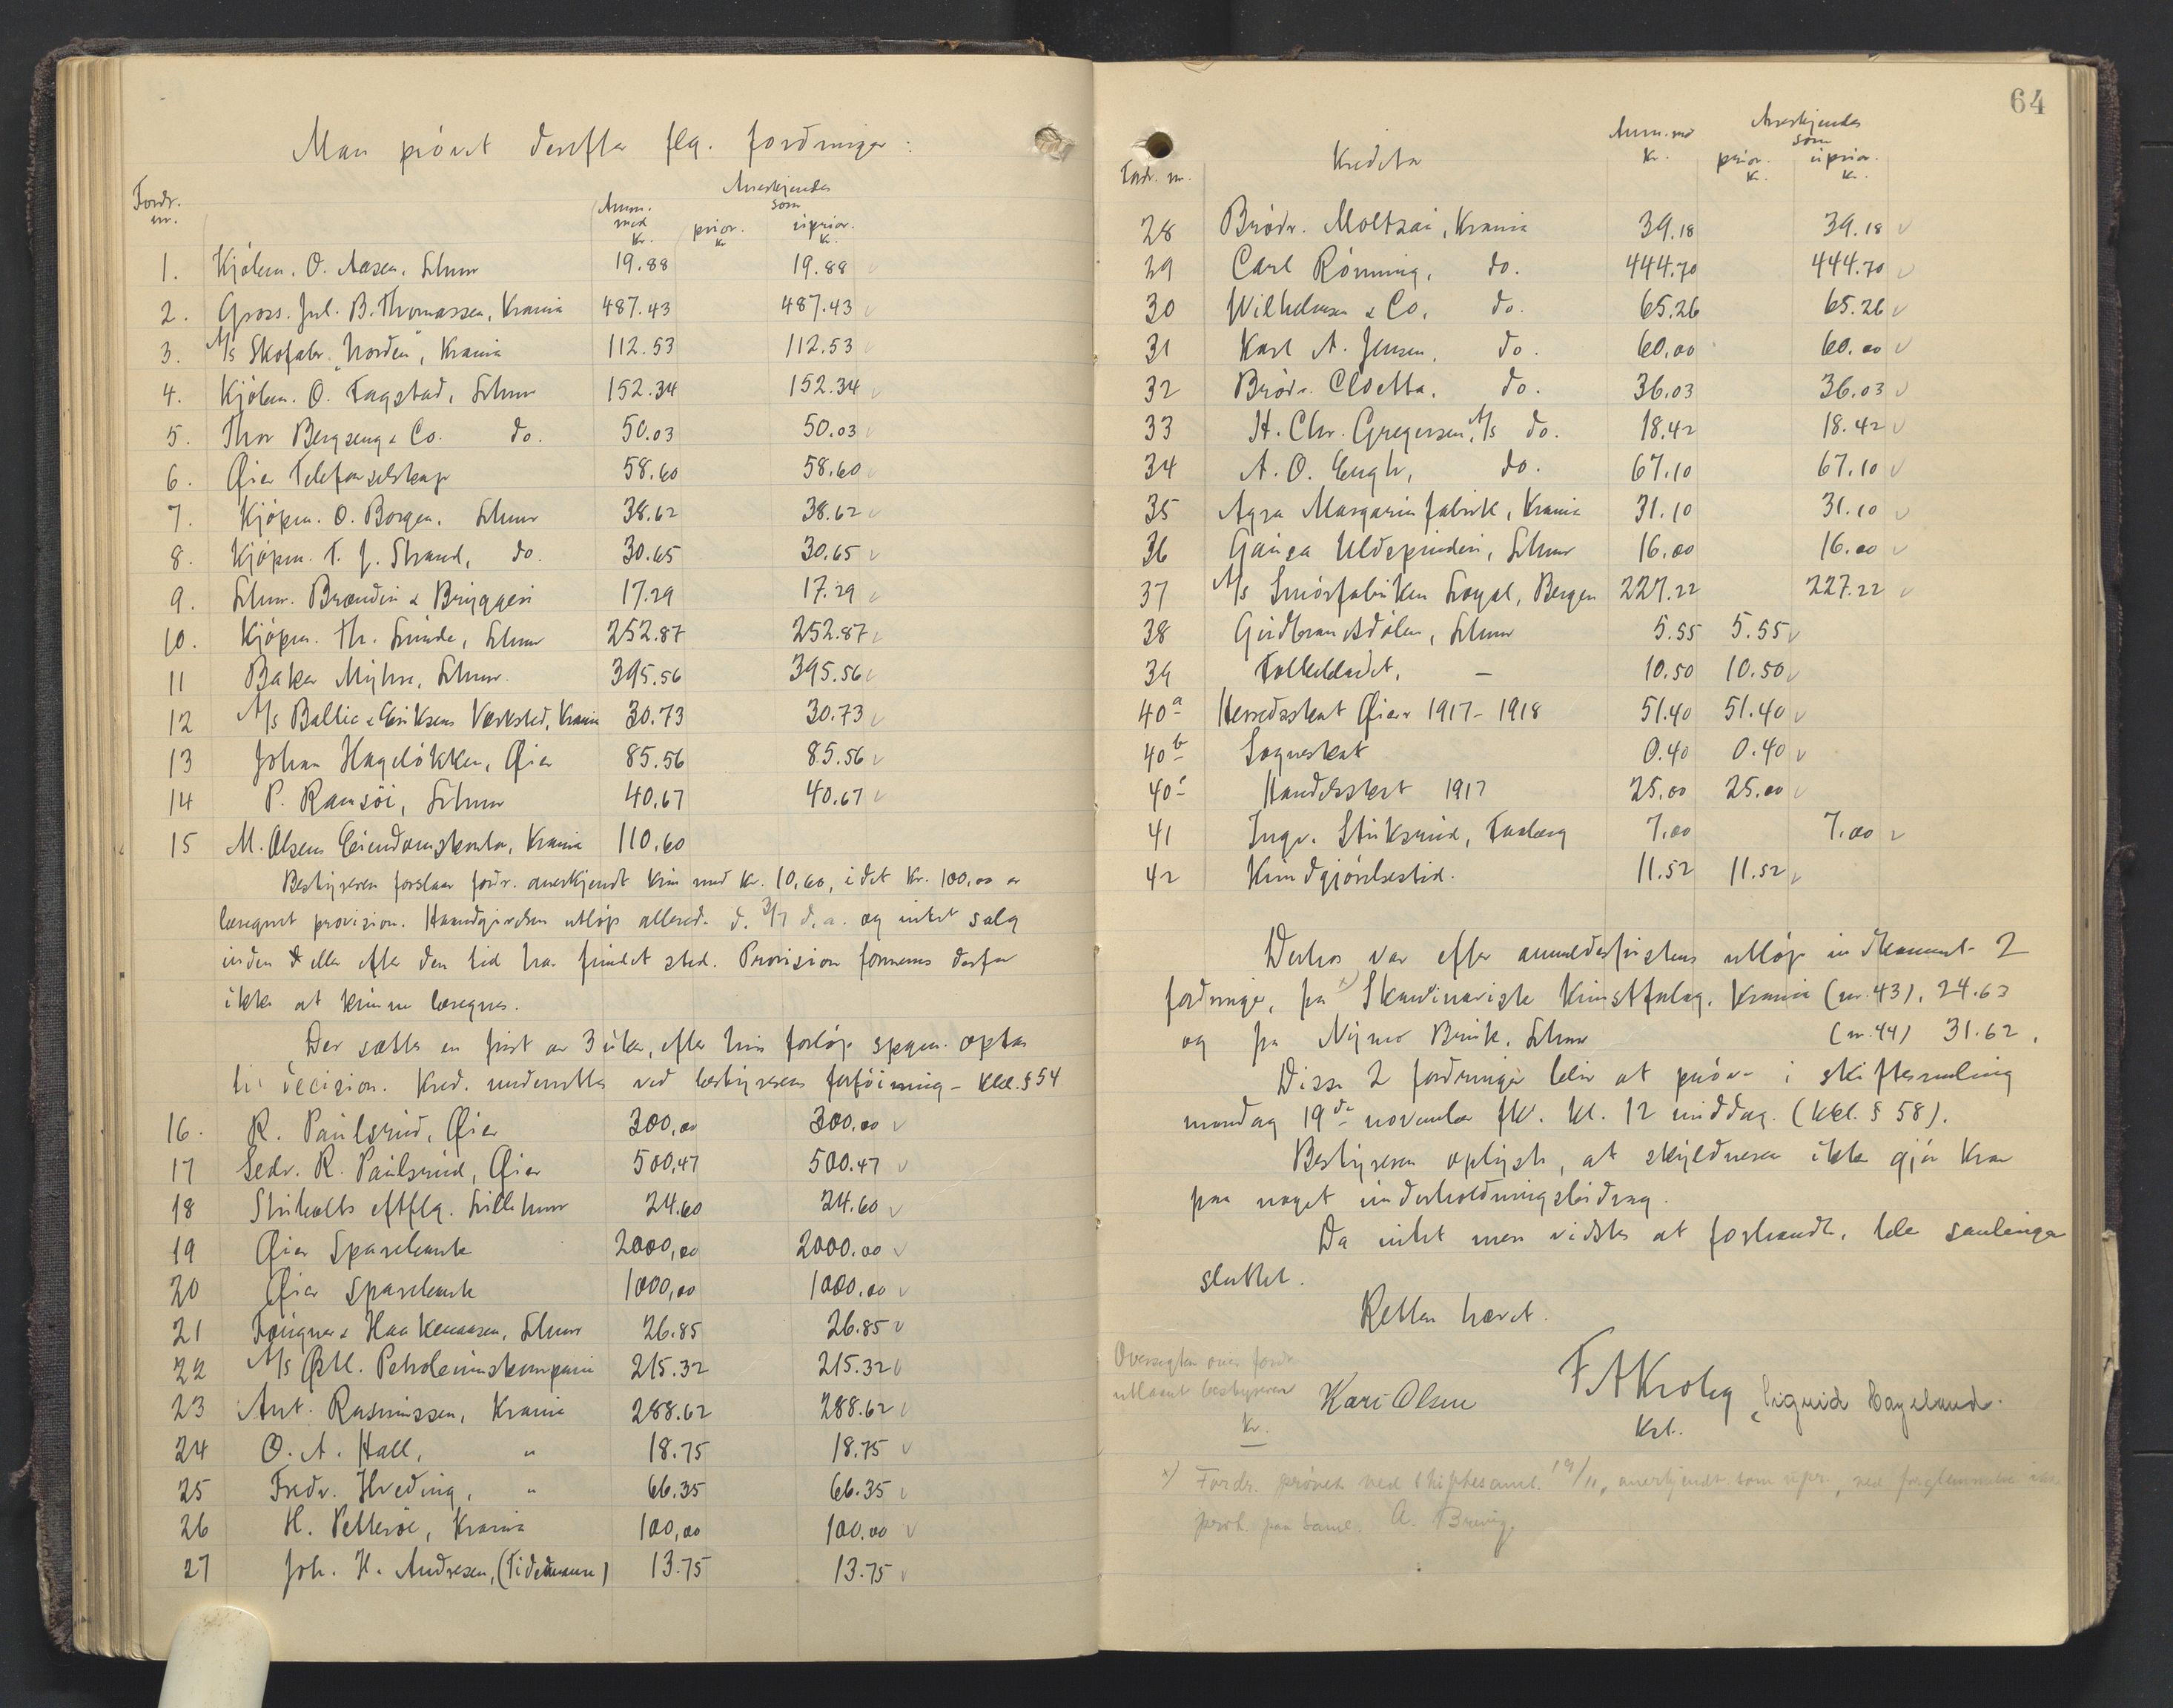 Man prövet derefter flg. fordringer:
Fordr. nr. Anm. med Kr. Anerkjendes som prior. Kr. uprior. Kr.
1. Kjöbm. O. Aasen, Lhmr 19.88 19.88
2. Gross. Jul. B. Thomassen, Krania 487.43 487.43
3. A/s Skofabr. "Norden", Krania 112.53 112.53
4. Kjöbm. O. Fagstad, Lhmr 152.34 152.34
5. Thor Bergseng & Co. do. 50.03 50.03
6. Øier Telefonselskap 58.60 58.60
7. Kjöpm. O. Borgen, Lhmr 38.62 38.62
8. Kjöpm. T. J. Strand, do. 30.65 30.65
9. Lhmr. Brænderi & Bryggeri 17.29 17.29
10. Kjöpm. Th. Lunde, Lhmr 252.87 252.87
11 Baker Myhre, Lhmr. 395.56 395.56
12 A/s Ballie & Eriksens Verksted, Krania 30.73 30.73
13 Johan Hagelökken, Øier 85.56 85.56
14 P. Ramsöi, Lhmr 40.67 40.67
15 M. Olsens Eiendomskontor, Krania 110.60
Bestyreren forslaar fordr. anerkjendt kun med Kr. 10,60, idet Kr. 100,00 er
beregnet provision. Haandgivelsen utlöp allerede d. 3/7 d.a. og intet salg
inden eller efter den tid har fundet sted. Provision formenes derfor
ikke at kunne beregnes.
Der sættes en frist av 3 uker, efter hvis forlöp spgm. optas
til decision. Kred. underrettes ved bestyrerens forföining - kkl. § 54
16. R. Paulsrud, Øier 300,00 300,00
17 Sedv. R. Paulsrud, Øier 500,47 500.47
18 Stribolts eftflg. Lillehmr 24.60 24.60
19 Øier Sparebank 2000,00 2000.00
20 Øier Sparebank 1000,00 1000.00
21 Fougner & Haakenaasen, Lhmr 26.85 26.85
22 A/s Østl. Petroleumskompani 215.32 215.32
23 Ant. Rasmussen, Krania 288.62 288.62
24 O. A. Hall, " 18.75 18.75
25 Fredr. Hveding, " 66.35 66.35
26 H. Petteröe, Krania 100,00 100.00
27 Joh. H. Andresen, (Tidemann) 13.75 13.75
64
Fordr. nr. Kreditor Anm. med Kr. Anerkjendes som prior. Kr. uprior. Kr.
28 Brödr. Moltzau, Krania 39.18 39.18
29 Carl Rönning, do. 444.70 444.70
30 Wilhelmsen & Co, do. 65.26 65.26
31 Karl A. Jensen, do. 60,00 60.00
32 Brödr. Cloetta, do. 36.03 36.03
33 H. Chr. Gregersen, A/s do. 18.42 18.42
34 A. O. Engh, do. 67.10 67.10
35 Agra Margarinfabrik, Krania 31.10 31.10
36 Gausa Uldspinderi, Lhmr 16.00 16.00
37 A/s Smörfabriken Loyal, Bergen 227.22 227.22
38 Gudbrandsdölen, Lhmr 5.55 5.55
39 Folkebladet, — 10.50 10.50
40a Herredsskat Øier 1917-1918 51.40 51.40
40b Sogneskat 0.40 0.40
40c Handelsskat 1917 25.00 25.00
41 Ingv. Stuksrud, Faaberg 7.00 7.00
42 Kundgjörelsestid. 11.52 11.52
Derhos var efter anmeldelsfristens utlöp indkommet 2
fordringer, fra x) Skandinavisk Kunstforlag, Krania (nr. 43), 24.63
og fra Nymo Bruk, Lhmr (nr. 44) 31.62.
Disse 2 fordringer blir at pröve i skiftesamling
mandag 19de november fk. kl. 12 middag. (kkl. § 58).
Bestyreren oplyste, at skyldneren ikke gjör krav
paa noget underholdningsbidrag.
Da intet mer vidstes at forhandle, blev samlingen
sluttet.
Retten hævet.
Oversigten over fordr.
utlaant bestyreren
Kr.
Kari Olsen F A Krohg Sigurd Hageland.
Kst.
x) Fordr. prövet ved skiftesaml. 19/11, anerkjendt som upr., ved forglemmelse ikke
prot. paa saml. A.